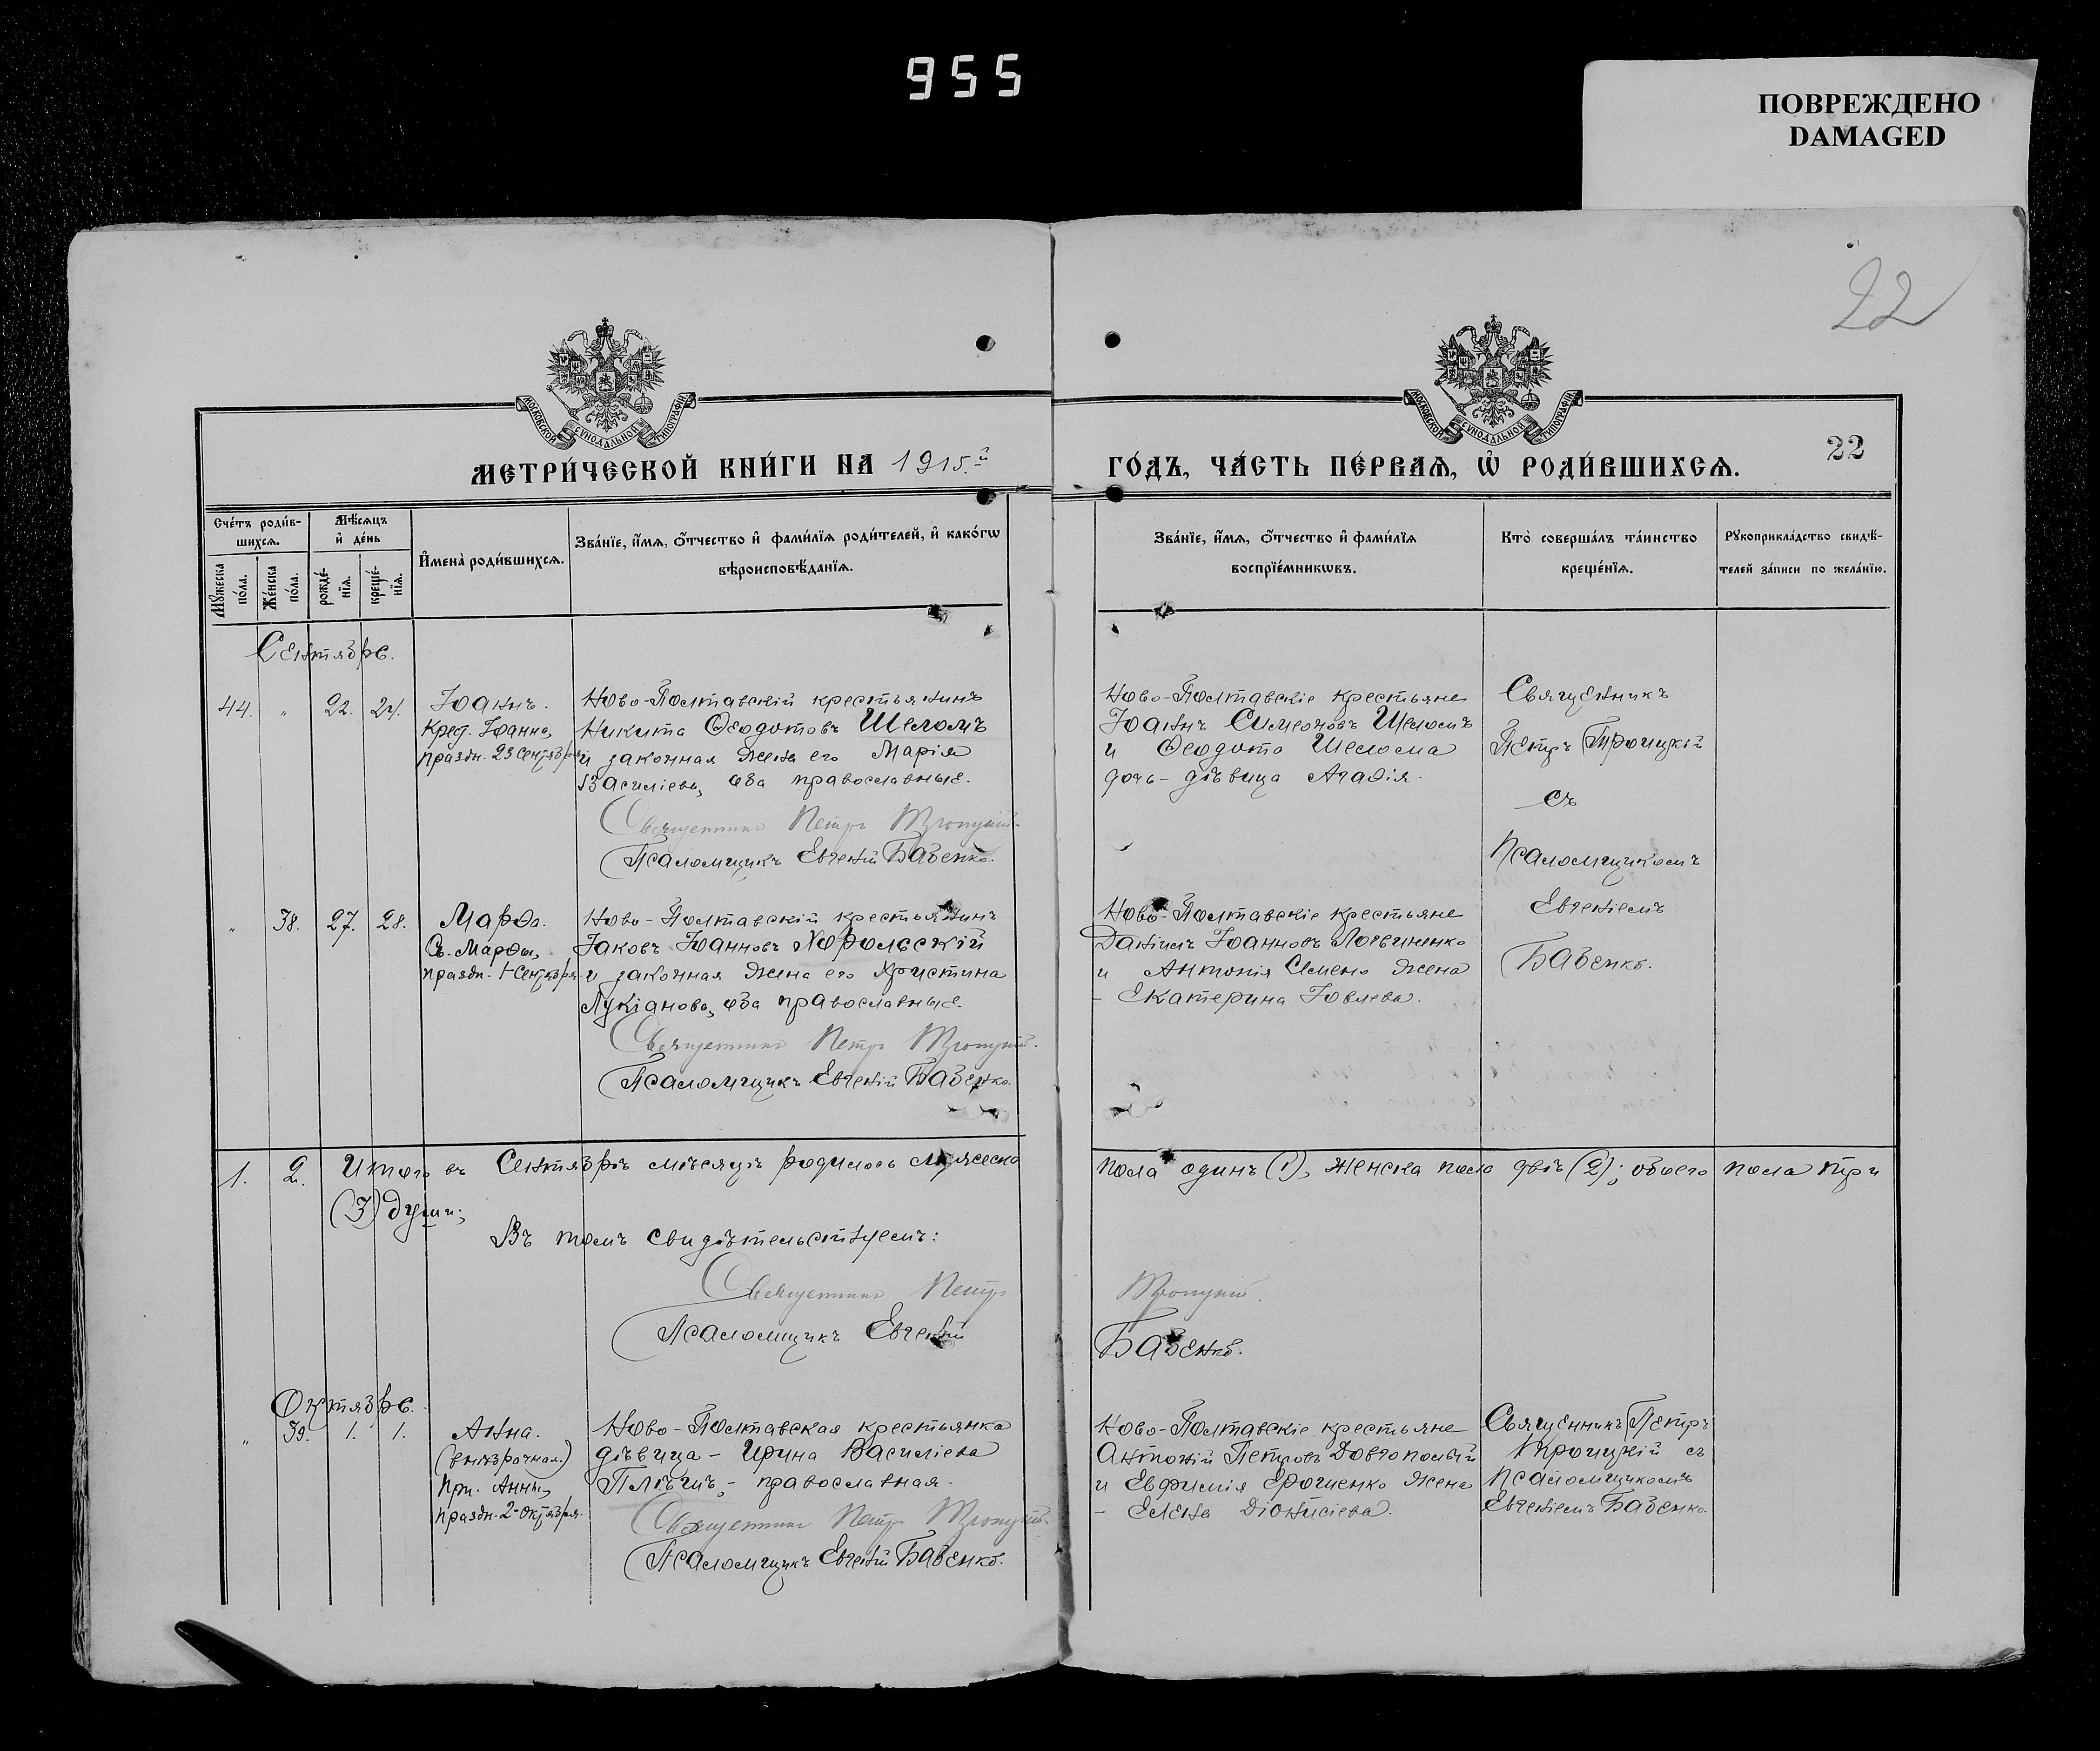 955
ПОВРЕЖДЕНО
DAMAGED
22
МОСКОВСКОЙ СѴНОДАЛЬНОЙ ТИПОГРАФІИ
МОСКОВСКОЙ СѴНОДАЛЬНОЙ ТИПОГРАФІИ
МЕТРИ́ЧЕСКОЙ КНИ́ГИ НА 1915.й
ГО́ДЪ, ЧА́СТЬ ПЕ́РВАѦ, Ѽ РОДИ́ВШИХСѦ.
22
Сче́тъ роди́в-
шихсѧ.
Мꙋжеска по́ла.
Же́нска по́ла.
Мѣ́сѧцъ
и҆ де́нь
рожде́-нїѧ.
креще́-нїѧ.
И҆мена̀ роди́вшихсѧ.
Зва́нїе, и҆́мѧ, ѻ҆́тчество и҆ фами́лїѧ роди́телей, и҆ како́гѡ
вѣроисповѣ́данїѧ.
Зва́нїе, и҆́мѧ, ѻ҆́тчество и҆ фами́лїѧ
воспрїе́мникѡвъ.
Кто̀ соверша́лъ та́инство
креще́нїѧ.
Рꙋкоприкла́дство свидѣ́-
телей за́писи по жела́нїю.
Сентябрь.
44. " 22. 24. Іоаннъ.
Крест. Іоанна,
праздн. 23 Сентября
Ново-Полтавскій крестьянинъ
Никита Ѳеодотовъ Шеломъ
и законная жена его Марія
Василіева, оба православные.
Священникъ Петръ Троицкій.
Псаломщикъ Евгеній Бабенко.
Ново-Полтавскіе крестьяне
Іоаннъ Симеоновъ Шеломъ
и Ѳеодота Шелома
дочь - дѣвица Агафія.
Священникъ
Петръ Троицкій
съ
Псаломщикомъ
Евгеніемъ
Бабенко.
" 38. 27. 28. Марѳа.
Св. Марѳы,
праздн. 1 Сентября.
Ново-Полтавскій крестьянинъ
Іаковъ Іоанновъ Хорольскій
и законная жена его Христина
Лукіанова, оба православные.
Священникъ Петръ Троицкій.
Псаломщикъ Евгеній Бабенко.
Ново-Полтавскіе крестьяне
Даніилъ Іоанновъ Логвиненко
и Антонія Семено жена
- Екатерина Іовлева.
1. 2. Итого въ Сентябрѣ мѣсяцѣ родилось мужеска
пола одинъ (1), женска пола двѣ (2); обоего пола три
(3) души;
Въ томъ свидѣтельствуемъ:
Священникъ Петръ Троицкій.
Псаломщикъ Евгеній Бабенко.
Октябрь.
" 39. 1. 1. Анна.
(внѣбрачная.)
Прп. Анны,
праздн. 2-Октября.
Ново-Полтавская крестьянка
дѣвица - Ирина Василіева
- православная.
Священникъ Петръ Троицкій.
Псаломщикъ Евгеній Бабенко.
Ново-Полтавскіе крестьяне
Антоній Петровъ Довгополый
и Евфимія Ерошенко жена
- Елена Діонисіева.
Священникъ Петръ
Троицкій съ
Псаломщикомъ
Евгеніемъ Бабенко.